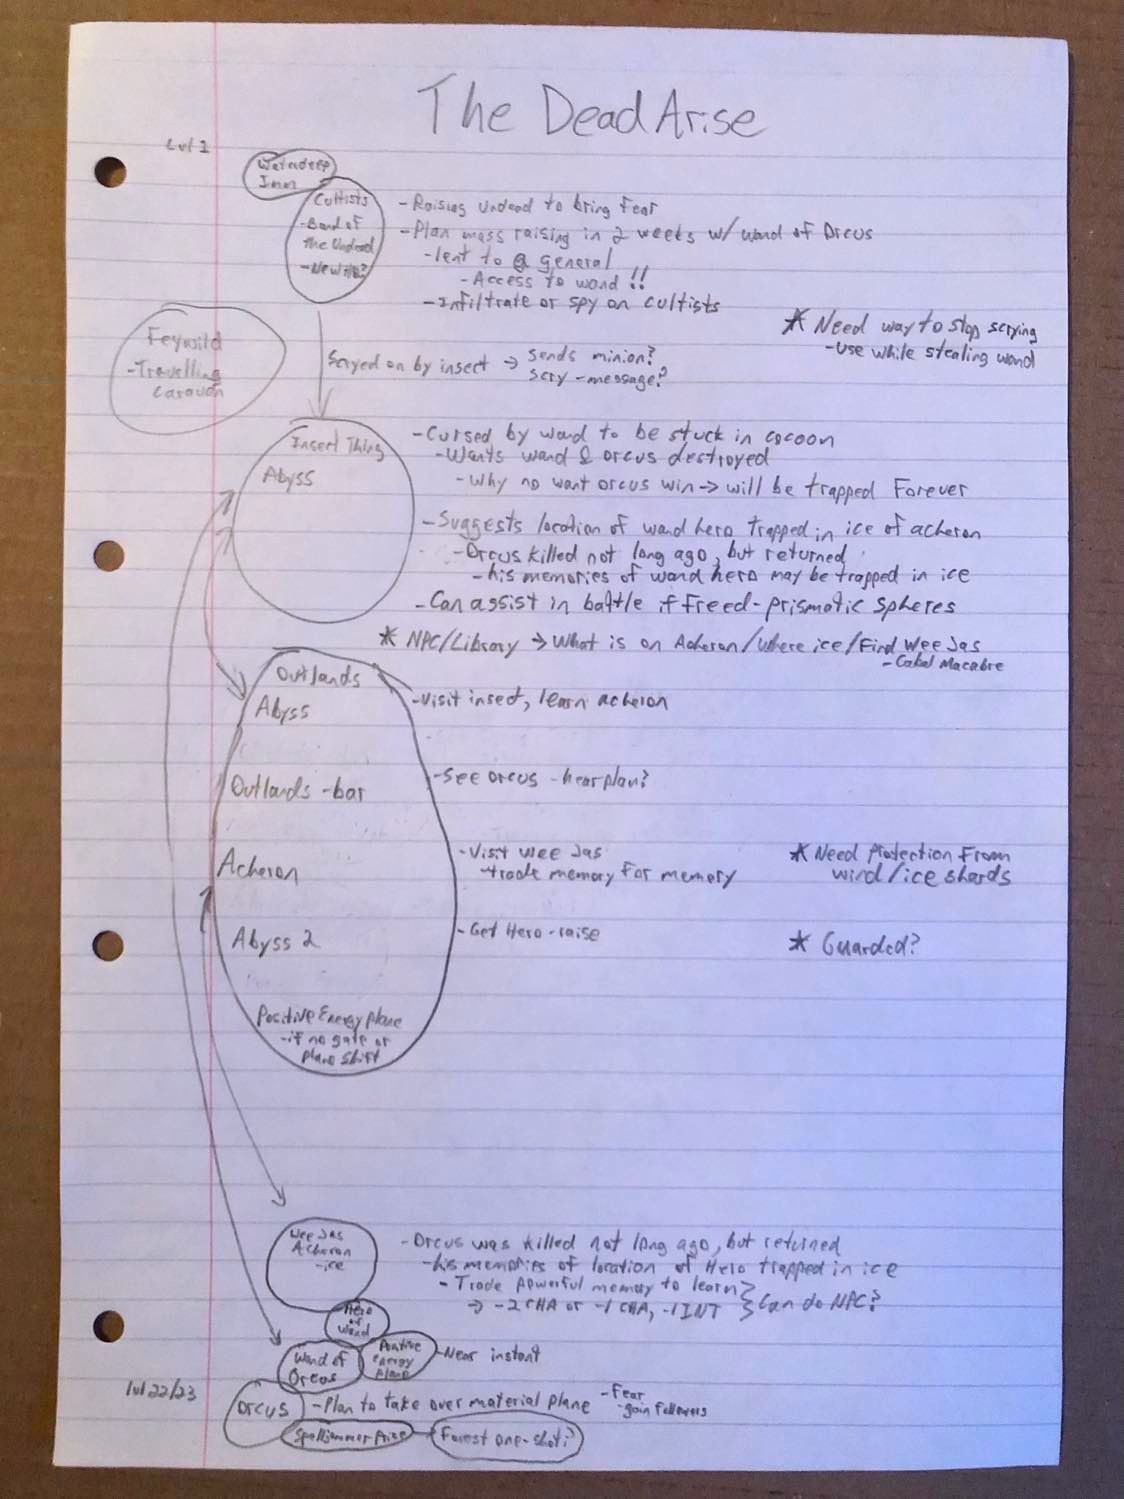 The Dead Arise
Lvl 1
Waterdeep
Inn
Cultists
-Band of
the Undead
- Raising Undead to bring Fear
- Plan mass raising in 2 weeks w/ wand of Orcus
-lent to a general
- Access to wand !!
- Infiltrate or spy on cultists
* Need way to stop scrying
-Use while stealing wand
Feywild
-Travelling
caravan
Scryed on by insect → sends minion?
scry-message?
Insect Thing
Abyss
-Cursed by wand to be stuck in cocoon
-Wants wand & orcus destroyed
-Why no want orcus win → will be trapped Forever
-Suggests location of wand hero trapped in ice of acheron
-Orcus killed not long ago, but returned
-his memories of wand hero may be trapped in ice
-Can assist in battle if freed-prismatic spheres
* NPC/Library → What is on Acheron/where ice/Find Wee Jas
-Cabal Macabre
Outlands
Abyss
-Visit insect, learn acheron
Outlands -bar
-See orcus -hear plan?
Acheron
-Visit Wee Jas
-trade memory for memory
* Need Protection From
wind/ice shards
Abyss 2
-Get Hero-raise
* Guarded?
Positive Energy plane
-if no gate or
plane shift
Wee Jas
Acheron
-ice
-Orcus was killed not long ago, but returned
-his memories of location of Hero trapped in ice
- Trade powerful memory to learn
→ -2 CHA or -1 CHA, -1 INT } Can do NPC?
Hero
of
Wand
Wand of
Orcus
Positive
Energy
plane
-Near instant
lvl 22/23
Orcus
-Plan to take over material plane
-Fear
-gain followers
Spelljammer Prize
Forest one-shot?